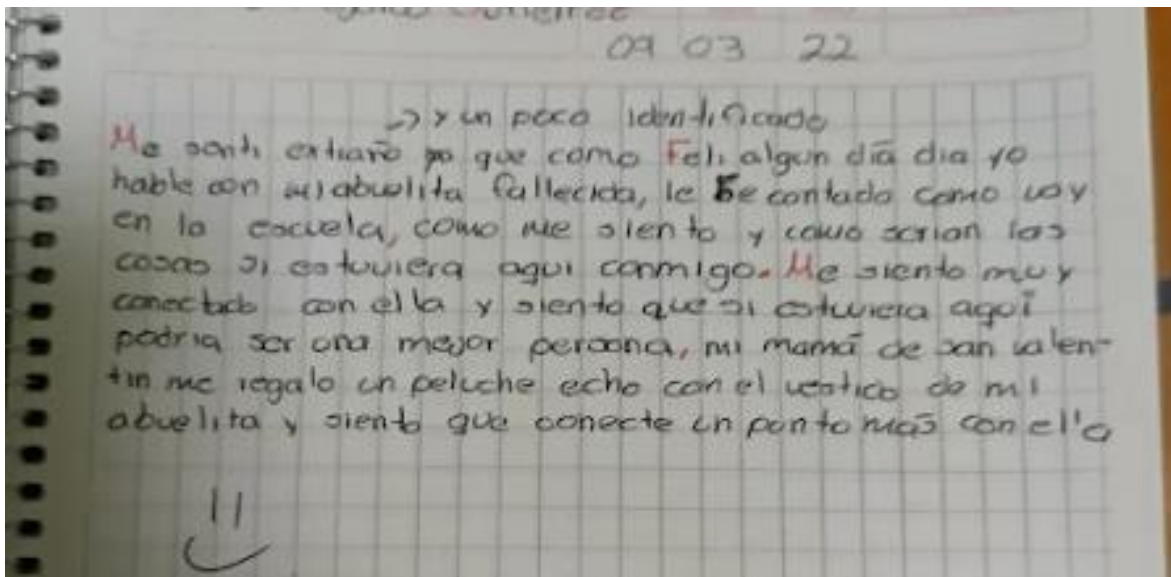 09 03 22
-> y un poco identificado
Me senti extraño ya que como Feli algun día dia yo
hable con mi abuelita fallecida, le he contado como voy
en la escuela, como me siento y como serian las
cosas si estuviera aqui conmigo. Me siento muy
conectado con ella y siento que si estuviera aquí
podria ser una mejor persona, mi mamá de san valen-
tin me regalo un peluche echo con el vestido de mi
abuelita y siento que conecte un punto más con ella